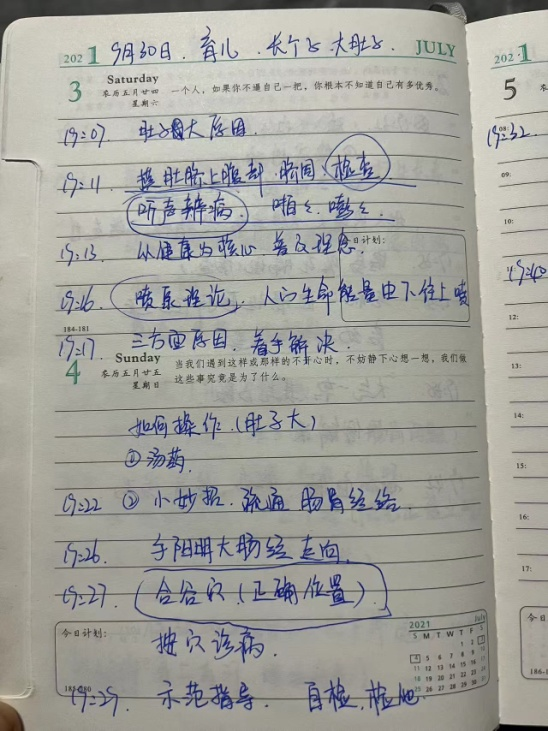 2021 9月30日. 育儿 . 长个子 大肚子. JULY
3 Saturday 农历五月廿四 星期六 一个人，如果你不逼自己一把，你根本不知道自己有多优秀。
19:07 肚子大原因.
19:11 揉肚脐上腹部.肠胃.检查
听声辨病. 啪々.嘭々.
19:13 从健康为核心 普及理念.
今日计划:
19:16 喷泉理论. 人的生命能量由下往上喷
184-181
19:17. 三方面原因.着手解决.
4 Sunday 农历五月廿五 星期日 当我们遇到这样或那样的不开心时，不妨静下心想一想，我们做
这些事究竟是为了什么。
如何操作.(肚子大)
①汤药.
19:22 ② 小妙招.疏通 肠胃经络.
19:26. 手阳明大肠经走向.
19:27. 合谷穴(正确位置)
今日计划:
按穴诊病.
185-180
19:29. 示范指导. 自检.检他.
2021 July
S M T W T F S
1 2 3
4 5 6 7 8 9 10
11 12 13 14 15 16 17
18 19 20 21 22 23 24
25 26 27 28 29 30 31
202
5
农历
星
19:32
08:
09:
10:
19:40
12:
13:
14:
15:
16:
17:
今日
186-1